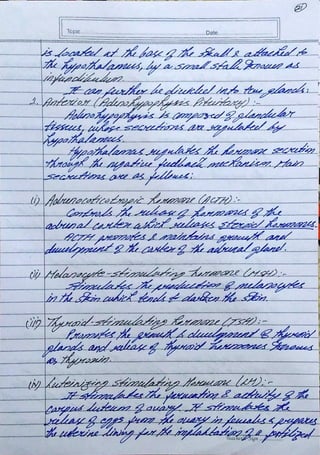 Topic Date
is located at the base of the skull & attached to
the hypothalamus, by a small stalk known as
infundibulum.
It can further be divided into two glands:
1. Anterior (Adenohypophysis Pituitary) :-
Adenohypophysis is composed of glandular
tissues, whose secretions are regulated by
hypothalamus.
Hypothalamus regulates the hormone secretion
through the negative feedback mechanism. Main
secretions are as follows:
(i) Adrenocorticotropic hormone (ACTH):-
Controls the release of hormones of the
adrenal cortex which releases steroid hormones.
ACTH promotes & maintains growth and
development of the cortex of the adrenal gland.
(ii) Melanocyte-stimulating hormone (MSH):-
Stimulates the production of melanocytes
in the skin which tends to darken the skin.
(iii) Thyroid-stimulating hormone (TSH):-
Promotes the growth & development of thyroid
glands and release of thyroid hormones known
as Thyroxin.
(iv) Luteinizing stimulating Hormone (LH):-
It stimulates the formation & activity of the
corpus luteum of ovary. It stimulates the
release of eggs from the ovary in females & prepares
the uterine lining for the implantation of a fertilized